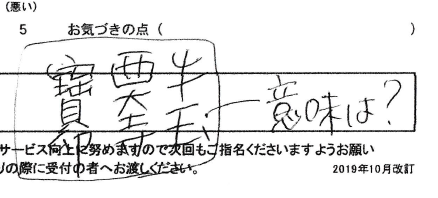 (悪い)
5 お気づきの点 ( )
牛玉
西大寺
寶印
意味は?
サービス向上に努めますので次回もご指名くださいますようお願い
りの際に受付の者へお渡しください。
2019年10月改訂